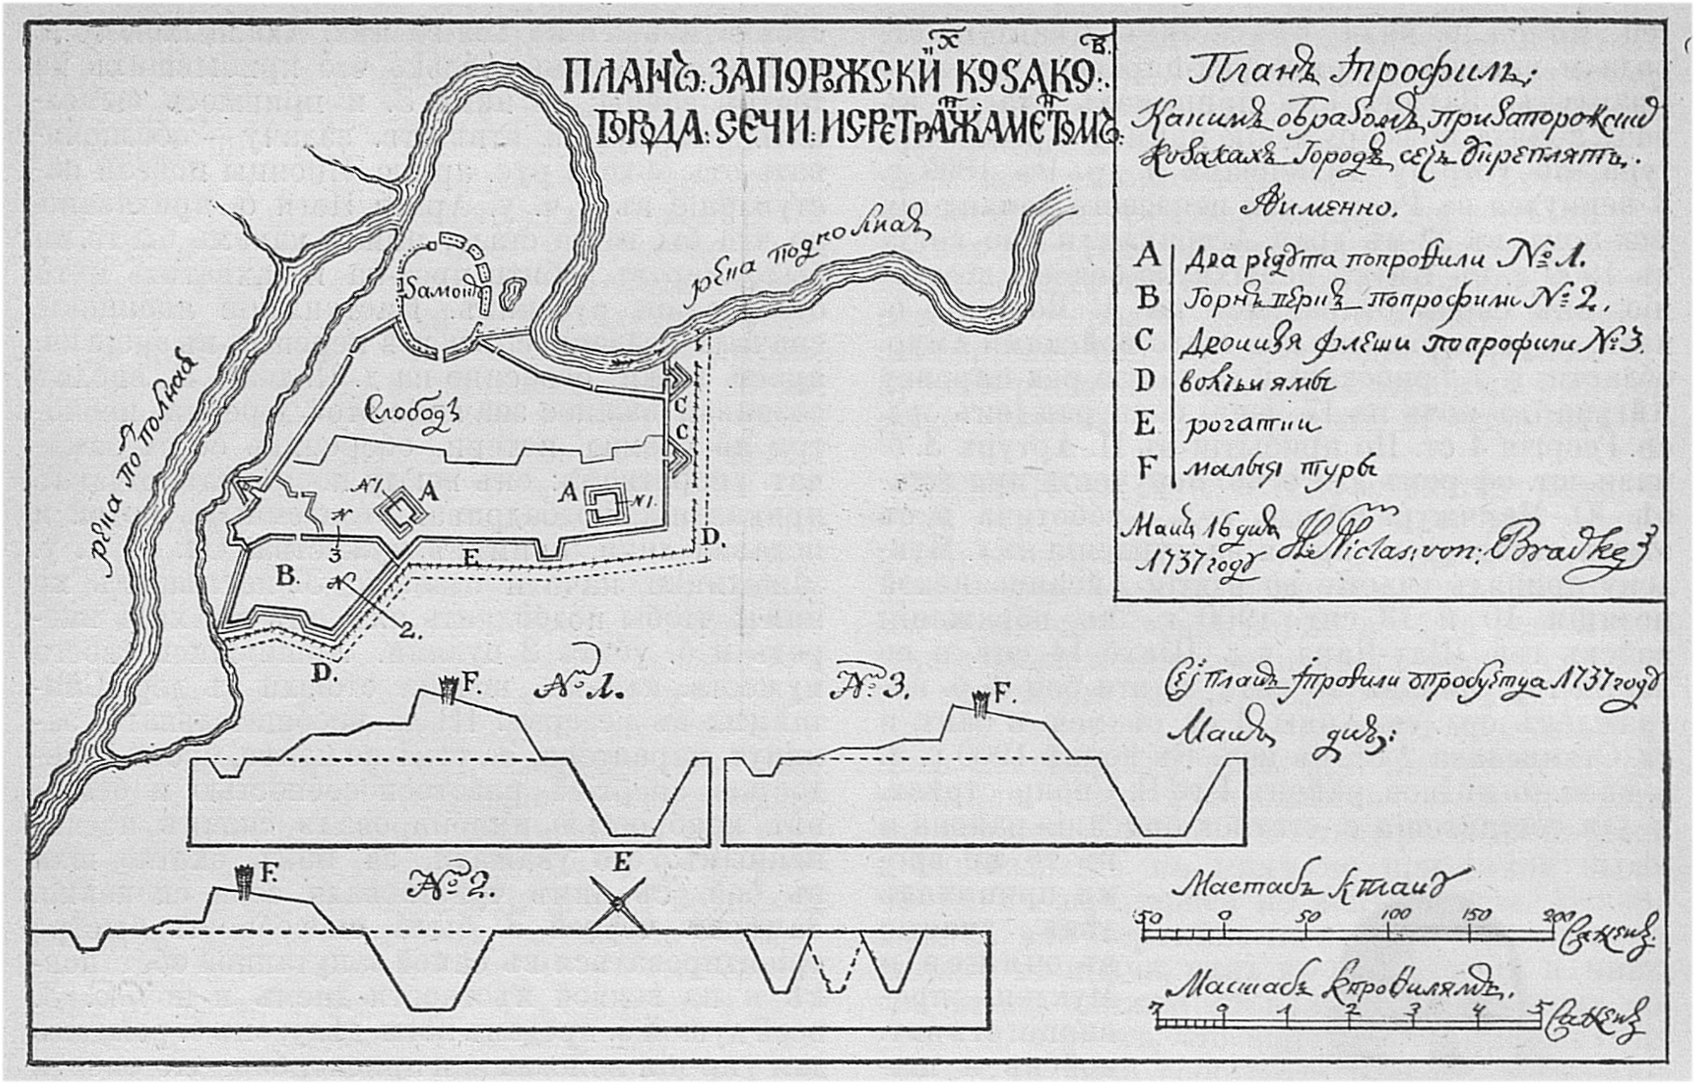 ПЛАНЪ: ЗАПОРОЖСКИХ КОЗАКОВ:
ГОРОДА: СЕЧИ: И С РЕТРАНЖАМЕНТОМЪ:
река подполная
река подполная
Замокъ
Слободъ
C
C
N 1
A
A
N 1.
N
3
B.
N
2.
E
D.
D.
Планъ и профиль:
Каким образомъ при запорожских
козаках городъ сечь укреплять.
А именно.
A Два редута по профили № 1.
B Горнъ веркъ по профили № 2.
C Двоиныя флеши по профили № 3.
D волчьи ямы
E рогатки
F малыя туры
Маия 16 дня
1737 году
H. Niclas: von: Bradke
F. № 1.
№ 3. F.
F. № 2.
E
Сеj планъ и профили 1737 году
Маия дня:
Мастабъ к плану
50 0 50 100 150 200 Саженъ.
Мастабъ к профилямъ.
7 0 1 2 3 4 5 Саженъ